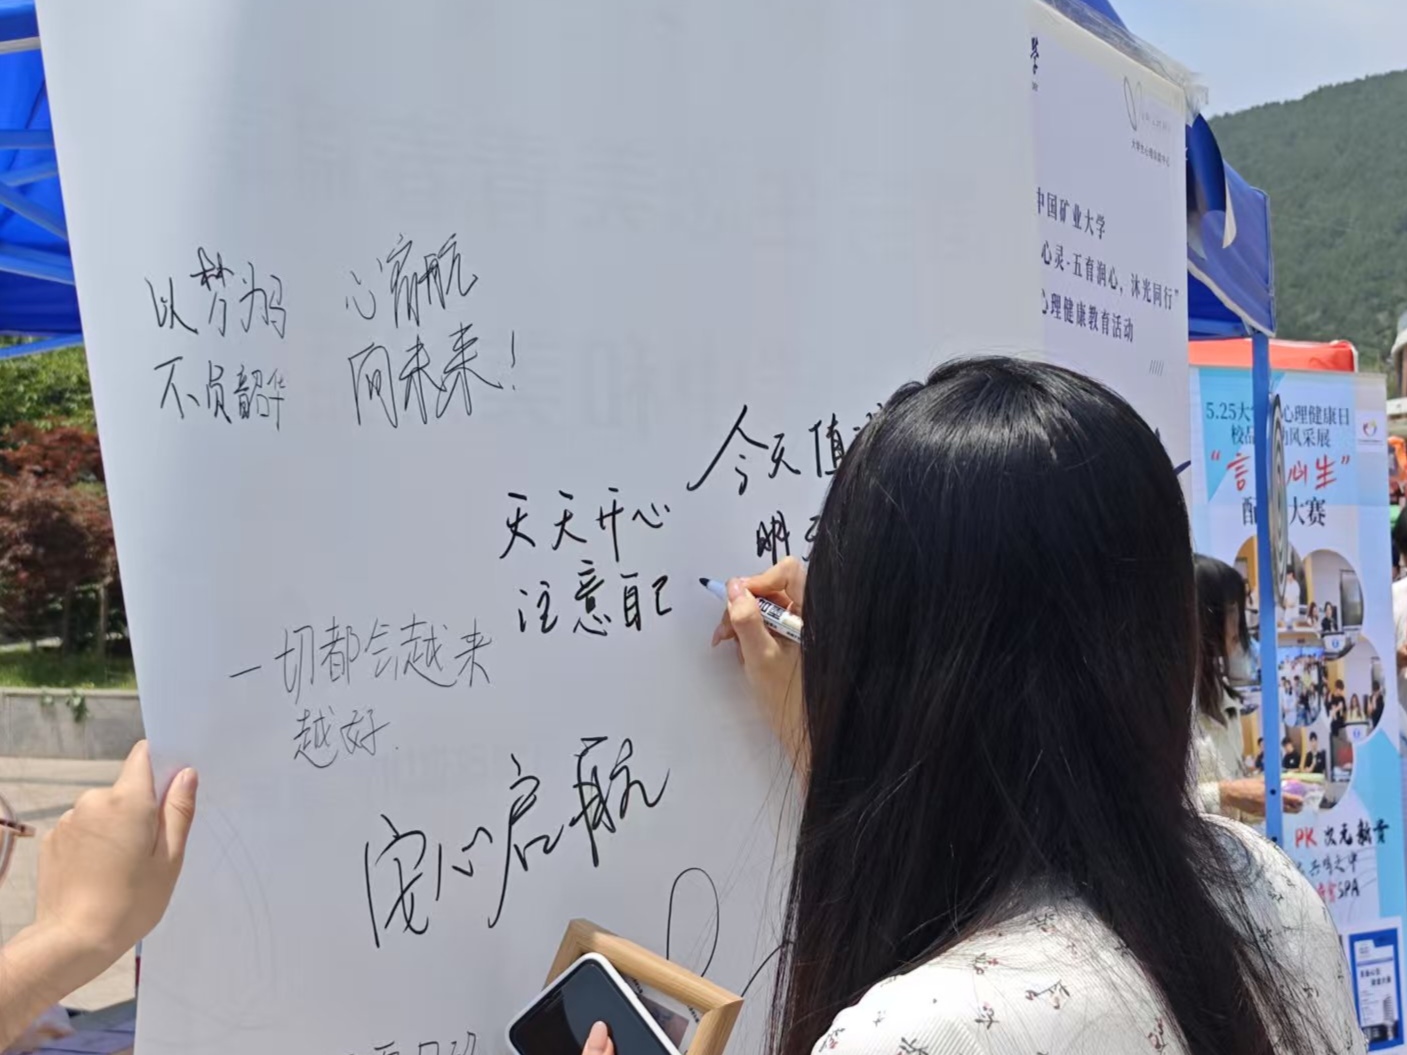 以梦为马
不负韶华
心育航
向未来！
今天值
明
天天开心
注意自己
一切都会越来
越好.
安心启航
中国矿业大学
心灵-五育润心，沐光同行”
心理健康教育活动
5.25大 心理健康日
校品 风采展
“言 心生”
配 大赛
PK 次元教育
SPA